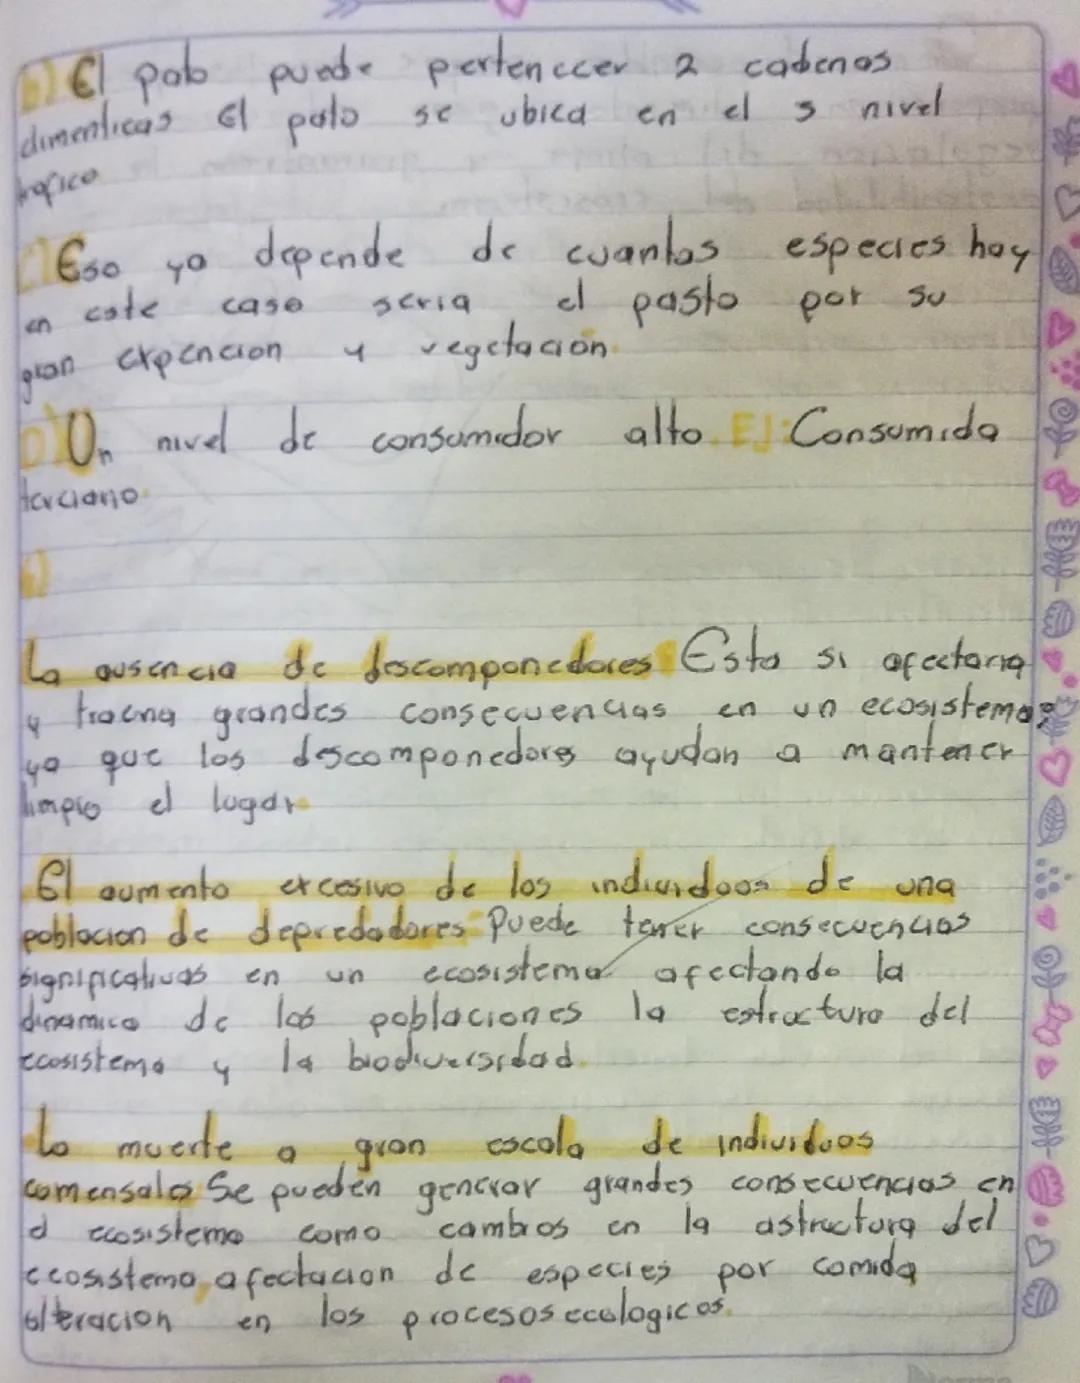 b) El pato puede pertenecer 2 cadenas
alimenticas El pato se ubica en el 3 nivel
trofico
C) Eso ya depende de cuantas especies hay
en este caso seria el pasto por su
gran expencion y vegetacion.
D) Un nivel de consumidor alto. EJ: Consumida
terciario.
La ausencia de descomponedores Esto si afectaria
y traeria grandes consecuencias en un ecosistema
ya que los descomponedores ayudan a mantener
limpio el lugar.
El aumento excesivo de los individoos de una
poblacion de depredadores Puede tener consecuencias
significativas en un ecosistema afectando la
dinamica de las poblaciones la estructura del
ecosistema y la biodiversidad.
La muerte a gran escala de individuos
comensales Se pueden generar grandes consecuencias en
el ecosistema como cambios en la astructura del
ecosistema, afectacion de especies por comida
alteracion en los procesos ecologicos.